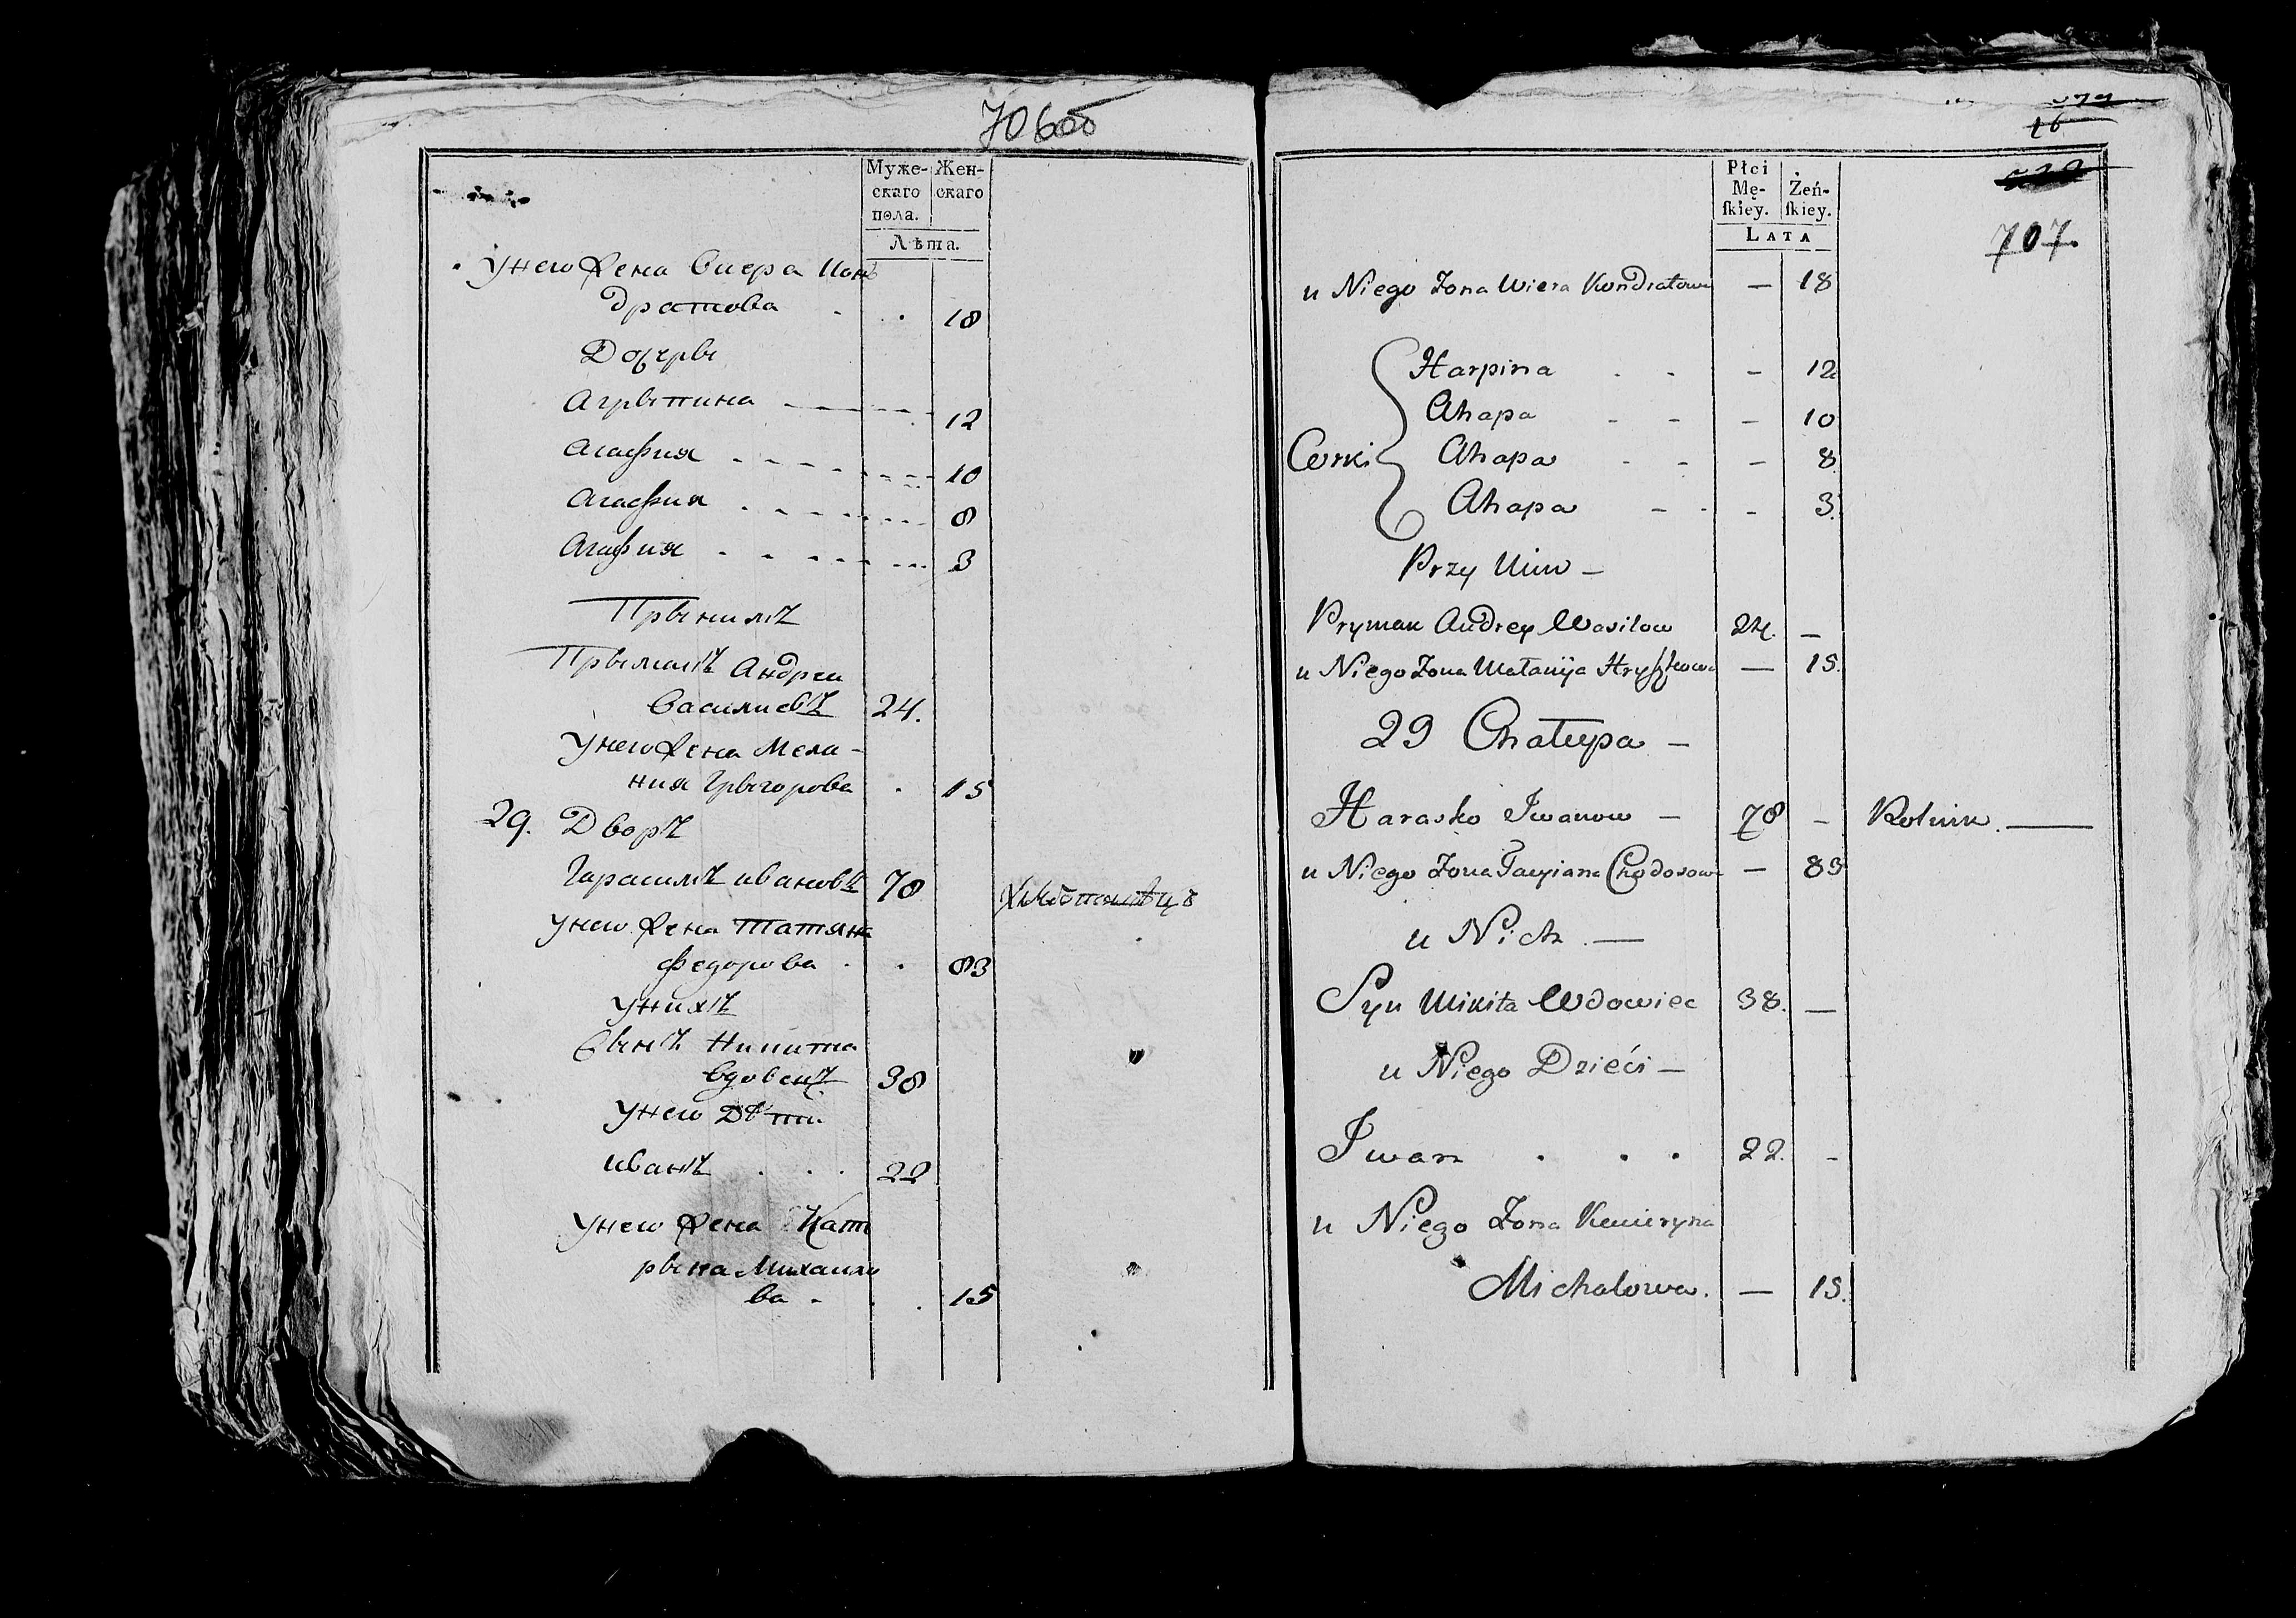 706об
Муже- Жен-
скаго скаго
пола.
Лѣта.
Унего жена Виера Кон
дратова . . 18
Доч�ры
Агрыпина 12
Агафия 10
Агафия 8
Агафия 3
Прынимъ
Прымакъ Андреи
Василиевъ 24.
Унего жена Мела-
ния Грыгорова . 15
29. Дворъ
Гарасимъ ивановъ 78 Хлѣбопашецъ
Унего жена Татяна
федорова . . 83
Унихъ
Сынъ Никита
вдовецъ 38
Унего Дѣти
иванъ . . . 22
Унего жена Кат
рына Михаило
ва . . . 15
16
707.
Płci
Mę- Żeń-
skiey. skiey.
LATA
u Niego Żona Wiera Kondratowa — 18
Harpina . . - 12
Ahapa - - - 10
Corki Ahapa - - - 8
Ahapa - - - 3.
Przy Nim —
Pryman Andrey Wasilow 24. —
u Niego Żona Małanija Hryszkowa — 15.
29 Chałupa —
Harasko Iwanow — 78 — Rolnik. —
u Niego Żona Tacyiana Chodorowa — 83
u Nich —
Syn Mikita Wdowiec 38. —
u Niego Dzieći —
Iwan . . . 22. -
u Niego Żona Kacieryna
Michalowa. — 15.